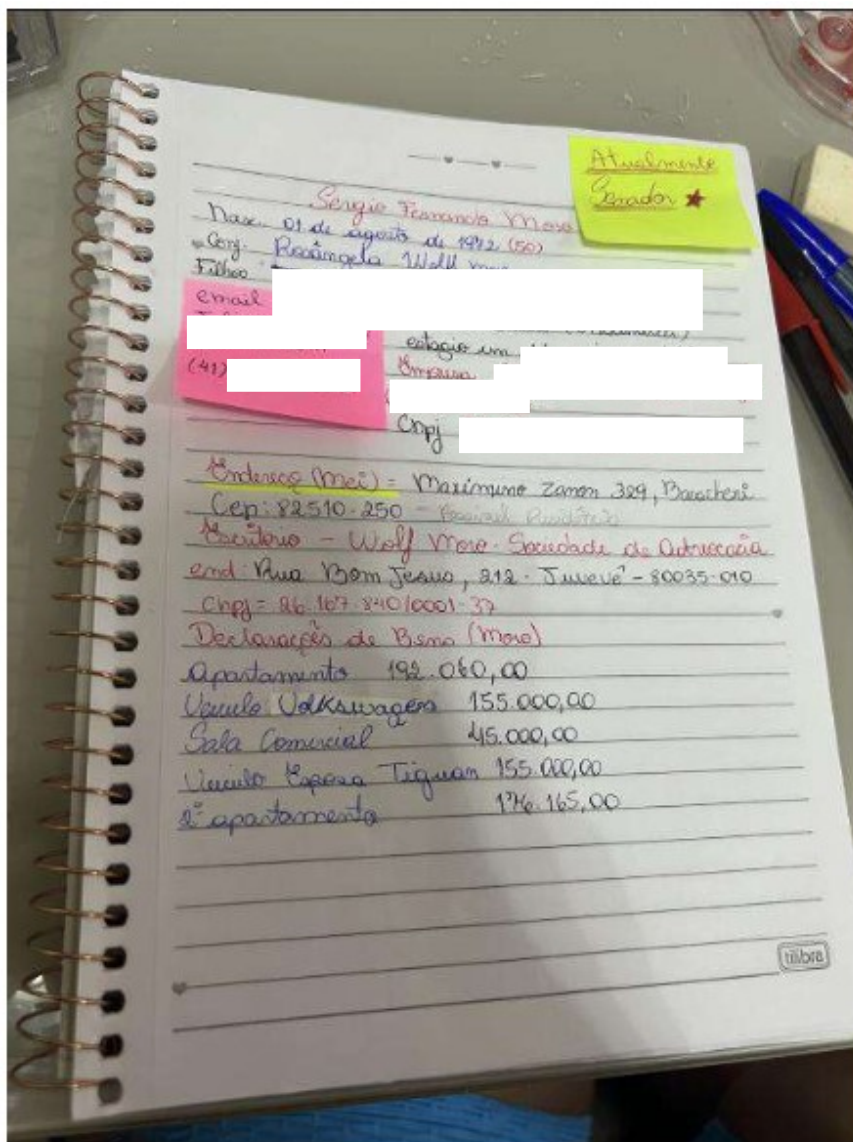 Atualmente
Senador ★
Sergio Fernando Moro
Nasc. 01 de agosto de 1972 (50)
Conj. Rosângela Wolff
Filhos
email
(41)
estagio em
Empresa
Cnpj
Endereço (Mei) = Maximino Zanon 329, Bacacheri
Cep: 82510-250 -
Escritorio - Wolf Moro - Sociedade de Advocacia
end: Rua Bom Jesus, 212 - Juvevê - 80035-010
Cnpj = 26.167.840/0001-37
Declarações de Bens (Moro)
Apartamento 192.060,00
Veiculo Volkswagen 155.000,00
Sala Comercial 45.000,00
Veiculo Esposa Tiguan 155.000,00
2º apartamento 176.165,00
tilibra